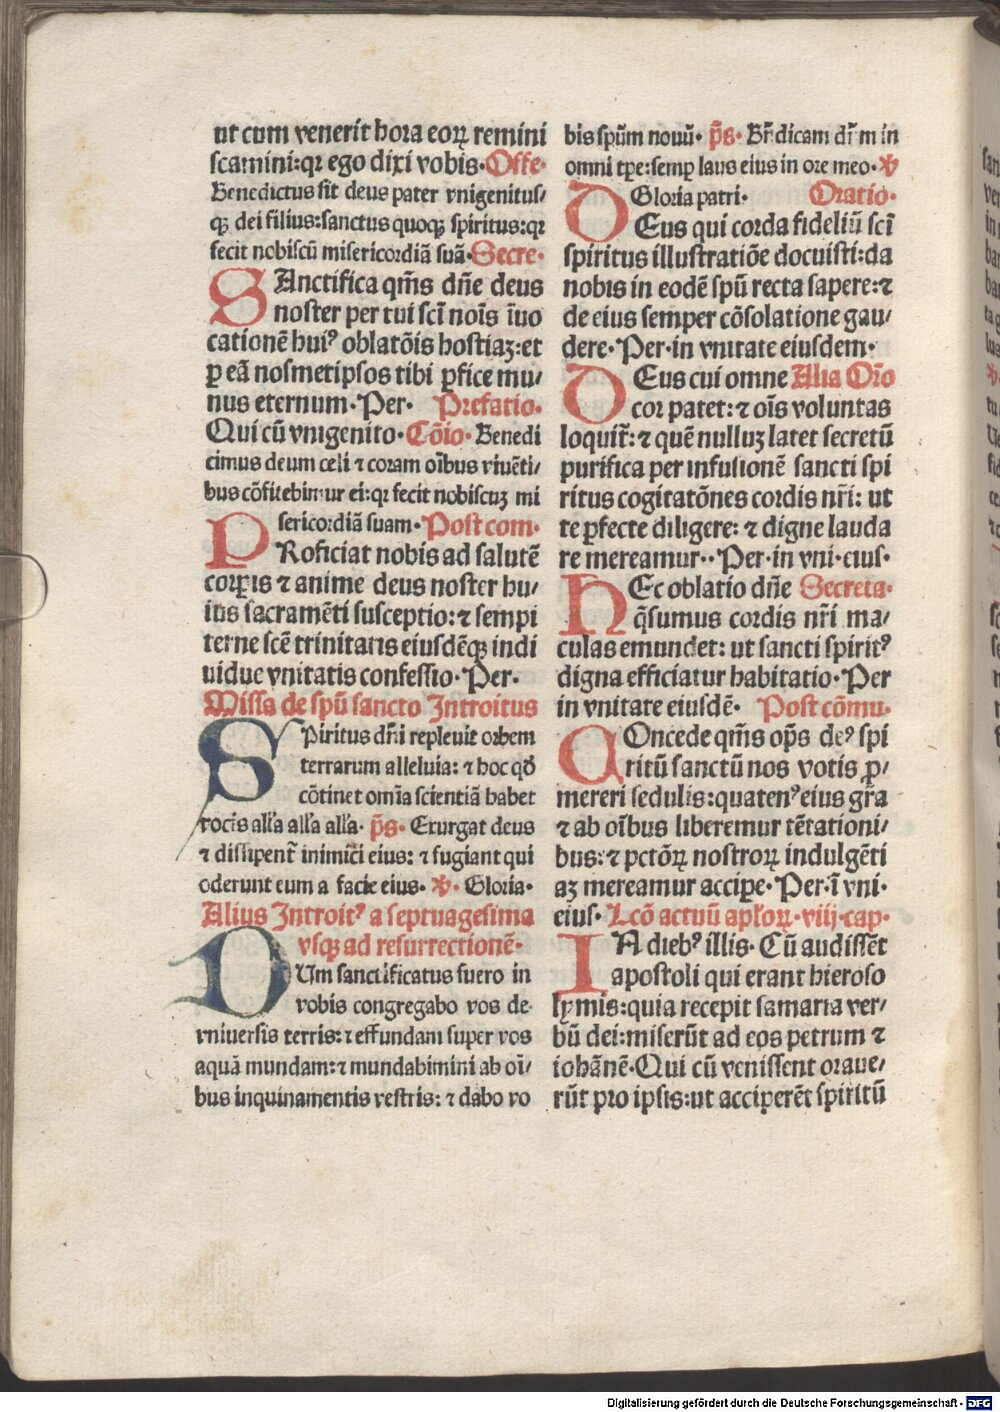 ut cum venerit hora eoꝝ remini
scamini:qꝛ ego dixi vobis·Offe·
Benedictus sit deus pater vnigenitus/
qꝫ dei filius:sanctus quoqꝫ spiritus:qꝛ
fecit nobiscū misericordiā suā·Secre·
SAnctifica qm̄s dn̄e deus
noster per tui scī noīs īuo
cationē huiꝰ oblatōis hostiaꝫ:et
ꝑ eā nosmetipsos tibi ꝑfice mu/
nus eternum·Per· Prefatio·
Qui cū vnigenito·Cōio· Benedi
cimus deum celi ⁊ coram oībus viuēti/
bus cōfitebimur ei:qꝛ fecit nobiscuꝫ mi
sericordiā suam·Post com·
PRoficiat nobis ad salutē
corꝑis ⁊ anime deus noster hu/
ius sacramēti susceptio:⁊ sempi
terne scē trinitatis eiusdēqꝫ indi
uidue vnitatis confessio·Per·
Missa de spū sancto Introitus
SPiritus dn̄i repleuit orbem
terrarum alleluia: ⁊ hoc qd̄
cōtinet om̄ia scientiā habet
vocis alľa alľa alľa· p̄s· Exurgat deus
⁊ dissipent̄ inimici eius: ⁊ fugiant qui
oderunt eum a facie eius· ℣· Gloria·
Alius Introitꝰ a septuagesima
vsqꝫ ad resurrectionē·
DUm sanctificatus fuero in
vobis congregabo vos de
vniuersis terris:⁊ effundam super vos
aquā mundam:⁊ mundabimini ab oī/
bus inquinamentis vestris: ⁊ dabo vo
bis spūm nouū· p̄s· Bn̄dicam dn̄m in
omni tpe:semꝑ laus eius in ore meo·℣
Gloria patri· Oratio·
DEus qui corda fideliū scī
spiritus illustratiōe docuisti:da
nobis in eodē spū recta sapere:⁊
de eius semper cōsolatione gau/
dere·Per·in vnitate eiusdem·
DEus cui omne Alia Or̄o
cor patet:⁊ oīs voluntas
loquit̄:⁊ quē nulluꝫ latet secretū
purifica per infusionē sancti spi
ritus cogitatōnes cordis nr̄i: ut
te ꝑfecte diligere: ⁊ digne lauda
re mereamur··Per·in vni·eius·
HEc oblatio dn̄e Secreta·
q̄sumus cordis nr̄i ma/
culas emundet: ut sancti spiritꝰ
digna efficiatur habitatio·Per
in vnitate eiusdē· Post cōmu·
COncede qm̄s op̄s deꝰ spi
ritū sanctū nos votis ꝓ/
mereri sedulis:quatenꝰ eius gr̄a
⁊ ab oībus liberemur tētationi/
bus:⁊ pctōꝝ nostroꝝ indulgēti
aꝫ mereamur accipe·Per·ī vni·
eius· Lcō actuū apľoꝝ·viij·cap·
IN diebꝰ illis·Cū audissēt
apostoli qui erant hieroso
lymis:quia recepit samaria ver/
bū dei:miserūt ad eos petrum ⁊
iohānē·Qui cū venissent oraue/
rūt pro ipsis:ut acciperēt spiritū
Digitalisierung gefördert durch die Deutsche Forschungsgemeinschaft - DFG